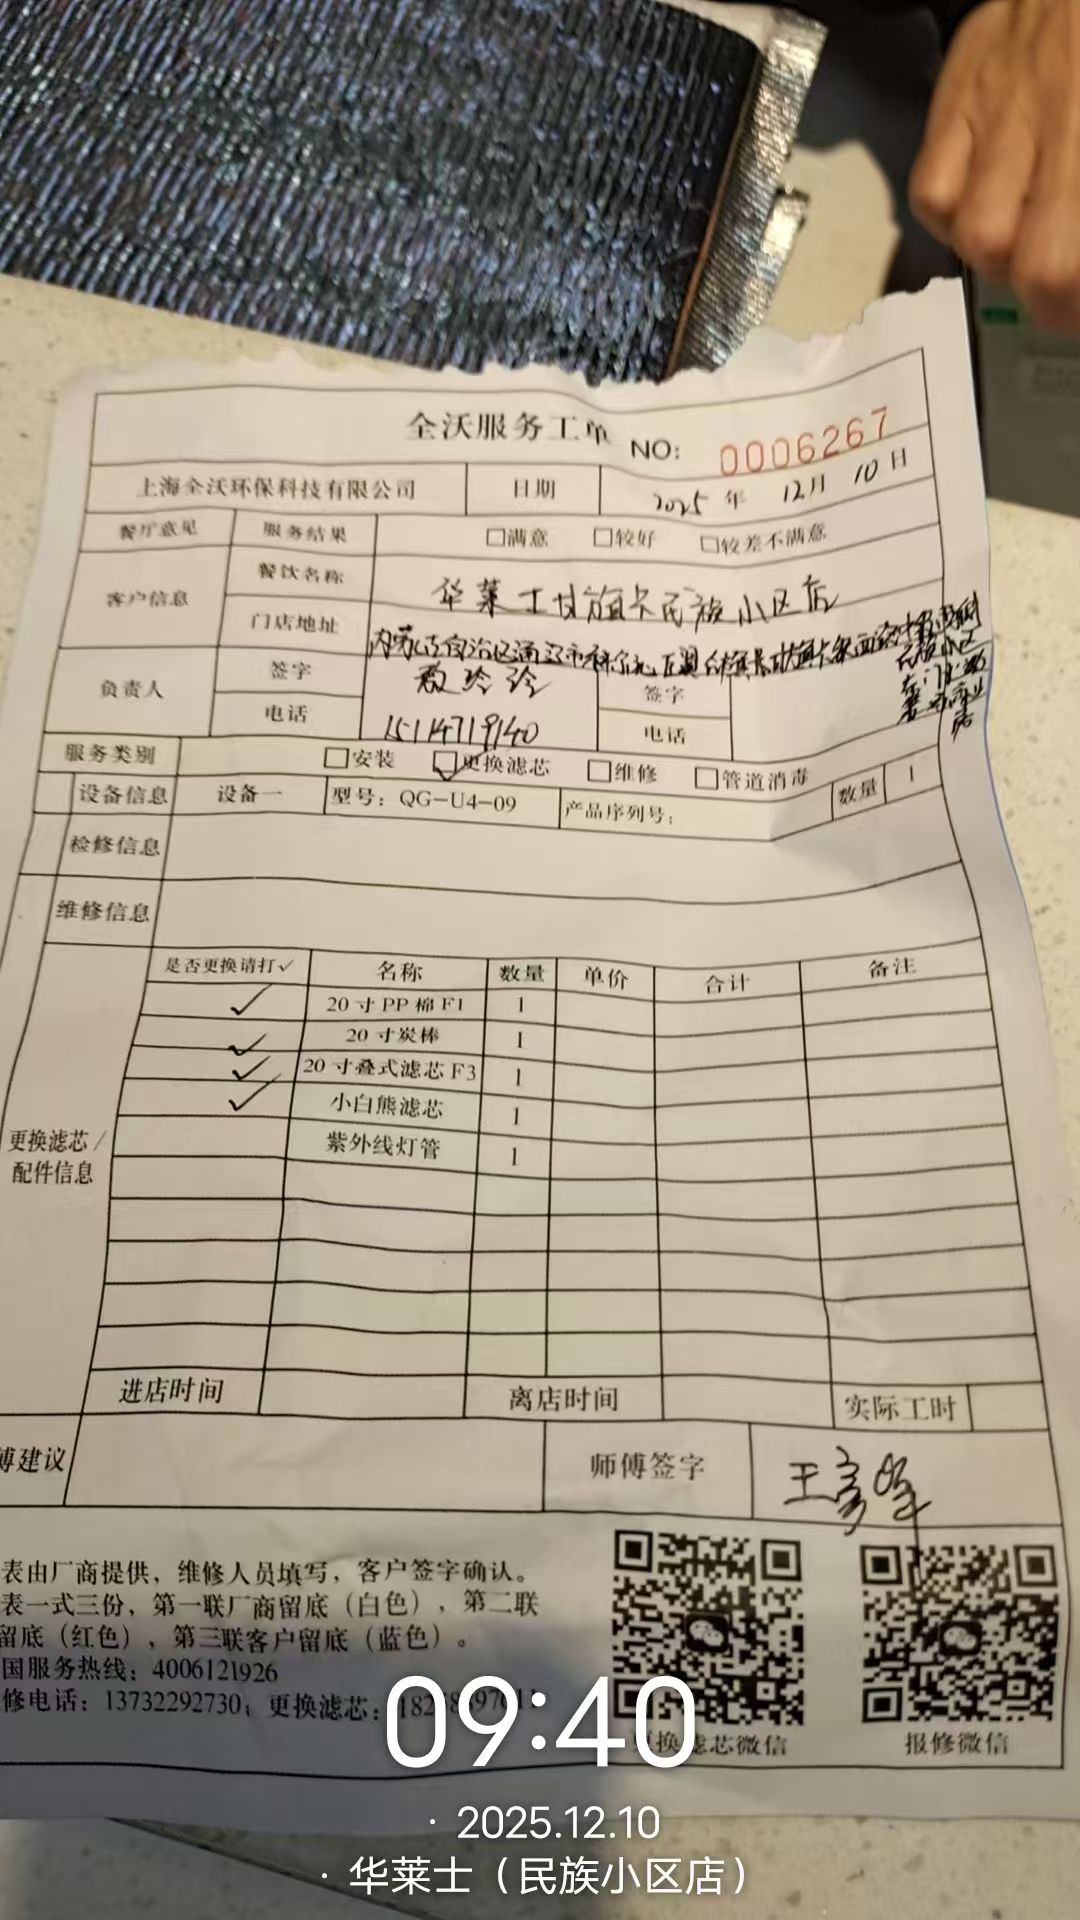 全沃服务工单 NO: 0006267
上海全沃环保科技有限公司 日期 2025年 12月 10日
餐厅意见 服务结果 □满意 □较好 □较差不满意
客户信息 餐饮名称 华莱士甘旗卡民族小区店
门店地址 内蒙古自治区通辽市科尔沁左翼后旗
民族小区
负责人 签字 玲玲 签字
电话 15114719140 电话
服务类别 □安装 ☑更换滤芯 □维修 □管道消毒
设备信息 设备一 型号：QG-U4-09 产品序列号： 数量 1
检修信息
维修信息
更换滤芯/
配件信息
是否更换请打✓ 名称 数量 单价 合计 备注
✓ 20寸PP棉F1 1
✓ 20寸炭棒 1
✓ 20寸叠式滤芯F3 1
✓ 小白熊滤芯 1
紫外线灯管 1
进店时间 离店时间 实际工时
傅建议 师傅签字 王彦峰
表由厂商提供，维修人员填写，客户签字确认。
表一式三份，第一联厂商留底（白色），第二联
留底（红色），第三联客户留底（蓝色）。
国服务热线：4006121926
修电话：13732292730；更换滤芯：
更换滤芯微信 报修微信
09:40
· 2025.12.10
· 华莱士（民族小区店）